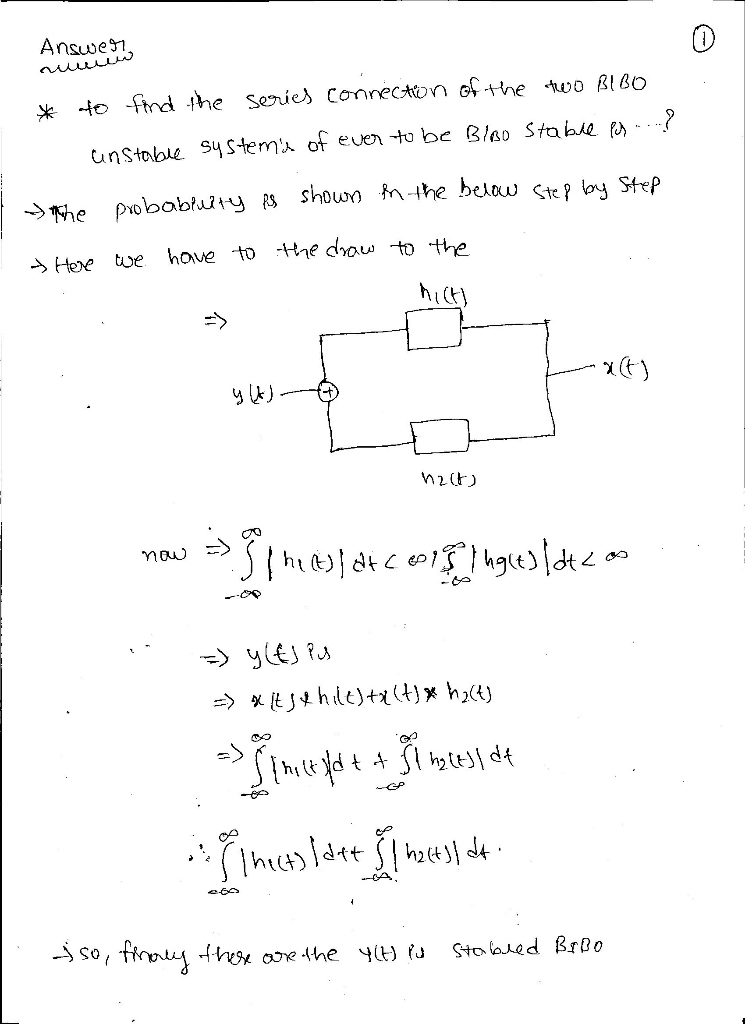 Answer
①
* to find the series connection of the two BIBO
unstable system's of ever to be BIBO stable is ...?
→ The probability is shown in the below step by step
→ Here we have to the draw to the
h1(t)
⇒
x(t)
y(t)
+
h2(t)
now ⇒ ∫_{-∞}^{∞} |h1(t)| dt < ∞, ∫_{-∞}^{∞} |h2(t)| dt < ∞
⇒ y(t) is
⇒ x(t) * h1(t) + x(t) * h2(t)
⇒ ∫_{-∞}^{∞} |h1(t)| dt + ∫_{-∞}^{∞} |h2(t)| dt
∴ ∫_{-∞}^{∞} |h1(t)| dt + ∫_{-∞}^{∞} |h2(t)| dt.
→ so, finally there are the y(t) is stabled BIBO